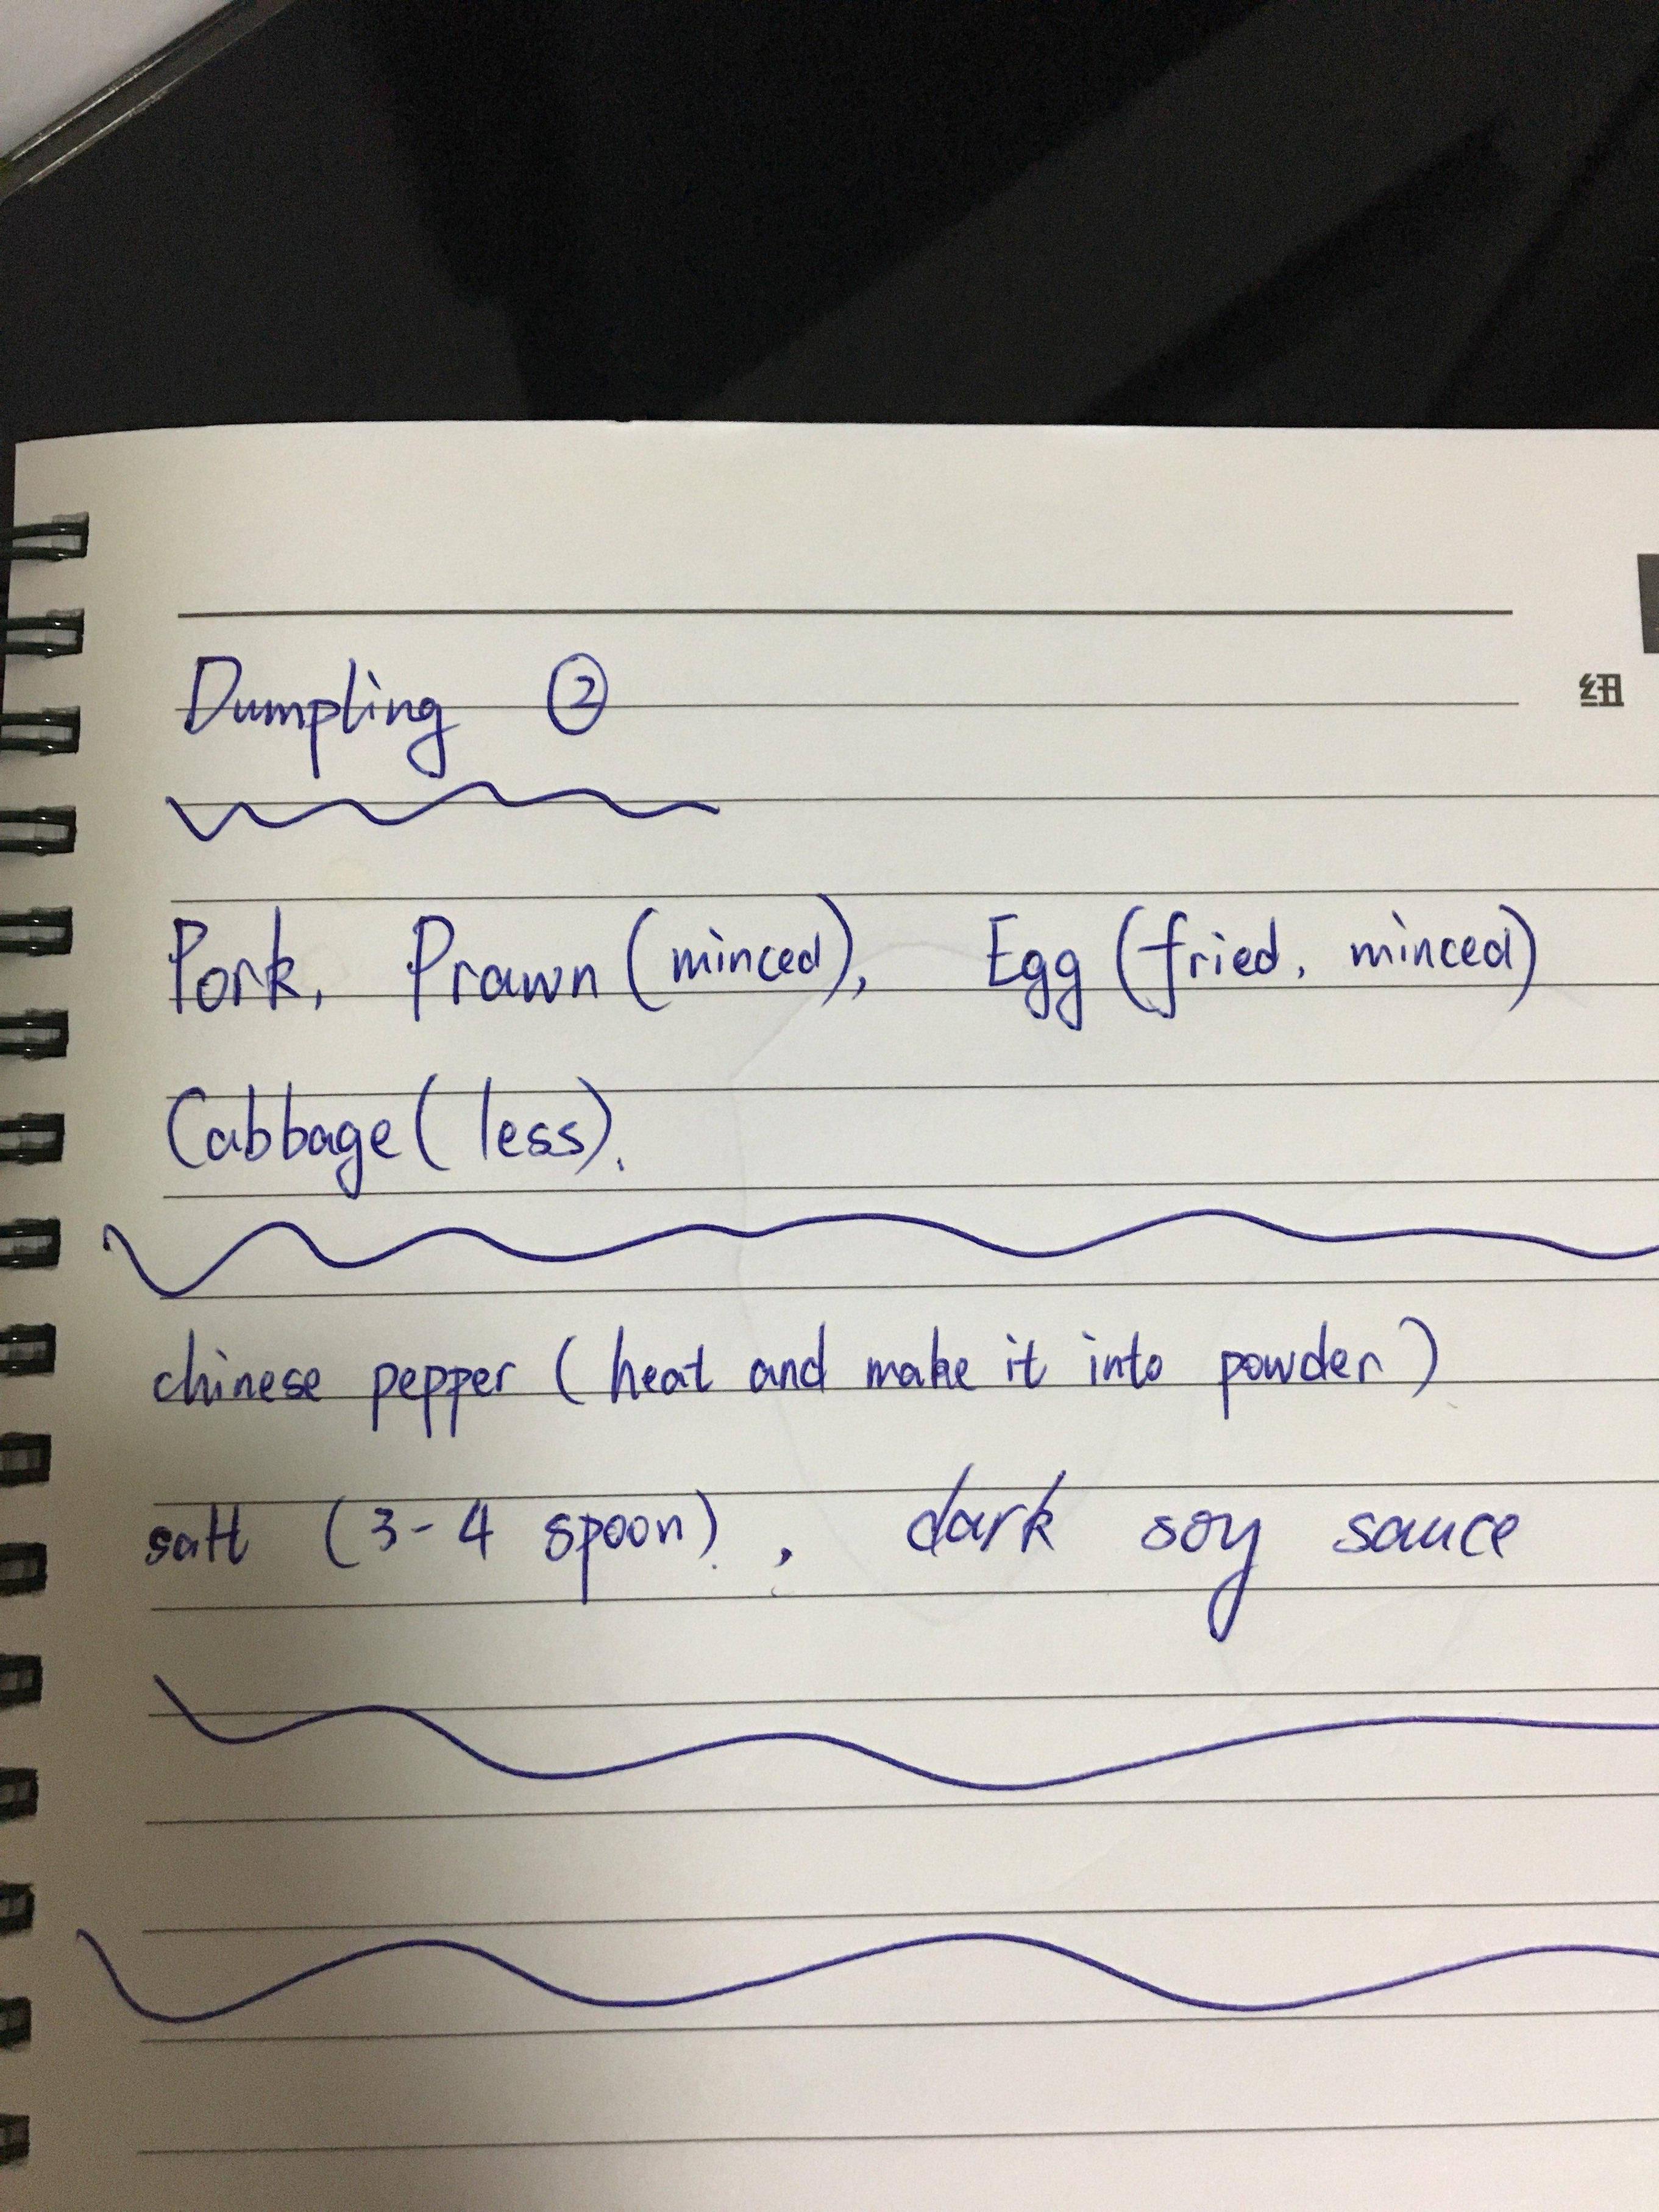 Dumpling ②
纽
Pork, Prawn (minced), Egg (fried, minced)
Cabbage (less).
chinese pepper (heat and make it into powder)
salt (3-4 spoon), dark soy sauce